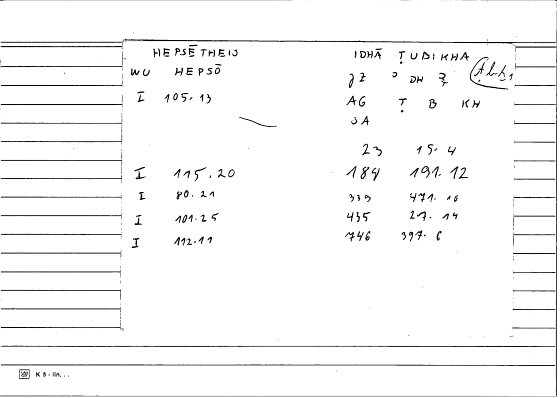 HEPSĒTHEIS IDHĀ ṬUBIKHA
WU HEPSŌ ȷZ ʾ DH
I 105.13 AG Ṭ B KH
ŪA
23 15.4
I 115.20 184 191.12
I 80.21 339 471.10
I 101.25 435 27.14
I 112.11 746 397.6
K 5 - lin. . .